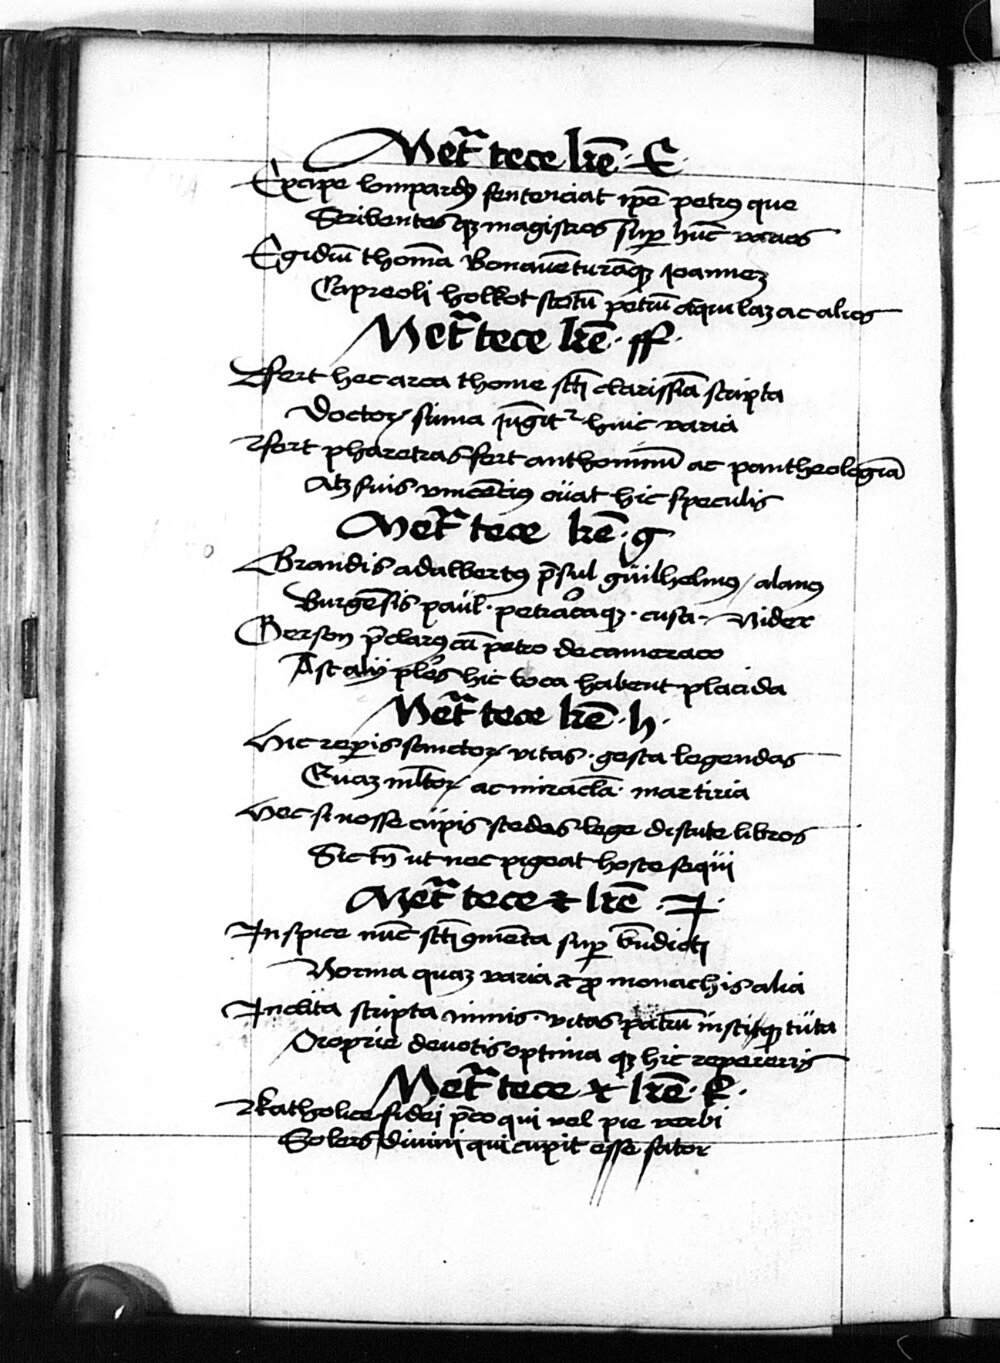 Met̃ tece lr̃e · E ·
Excipe lompardꝰ sentenciat ip̃e petrꝰ que
Scribentes qꝫ magistros sup̱ hũc varios
Egidiũ thom̃a Bonauẽturãqꝫ joannez
Capreoli holkot scotũ petrũ aquilaz ac alios
Met̃ tece lr̃e · ff ·
Ffert hec arca thome sc̃ti clarissĩa scripta
Doctoꝝ sũma jũgit᷑ huic varia
Ffert pharetras fert anthoninũ ac pantheologiã
Atqꝫ suis vincẽciꝰ ouat hic speculis
Met̃ tece lr̃e · g
Grandis adalbertꝰ p̃sul guilhelmꝰ / alanꝰ
Burgẽsis paul · petrãcaqꝫ · cusa · Nider
Gerson p̃clarꝰ cũ petro de cameraco
Ast alij pl̃es hic loca habent placida
Met̃ tece lr̃e · h ·
Hic rep̱is sanctoꝝ vitas · gesta legendas
Quaz ml̃toꝝ ac miracl̃a · martiria
Hec si nosse cupis stedas lege discute libros
Sic tñ ut nec pigeat hoste sequi
Met̃ tece et lr̃e · I ·
Inspice nũc sc̃ti ꝯmẽta sup̱ bñdicti
Norma quaz varia et ꝓ monachis alia
Inclita scripta nimis · vitas patrũ institqꝫ tuta
Proprie deuotis optima qꝫ hic repereris
Met̃ tece et lr̃e · K ·
Katholice fidei p̃co qui vel pie verbi
Solers diuini qui cupit esse sator